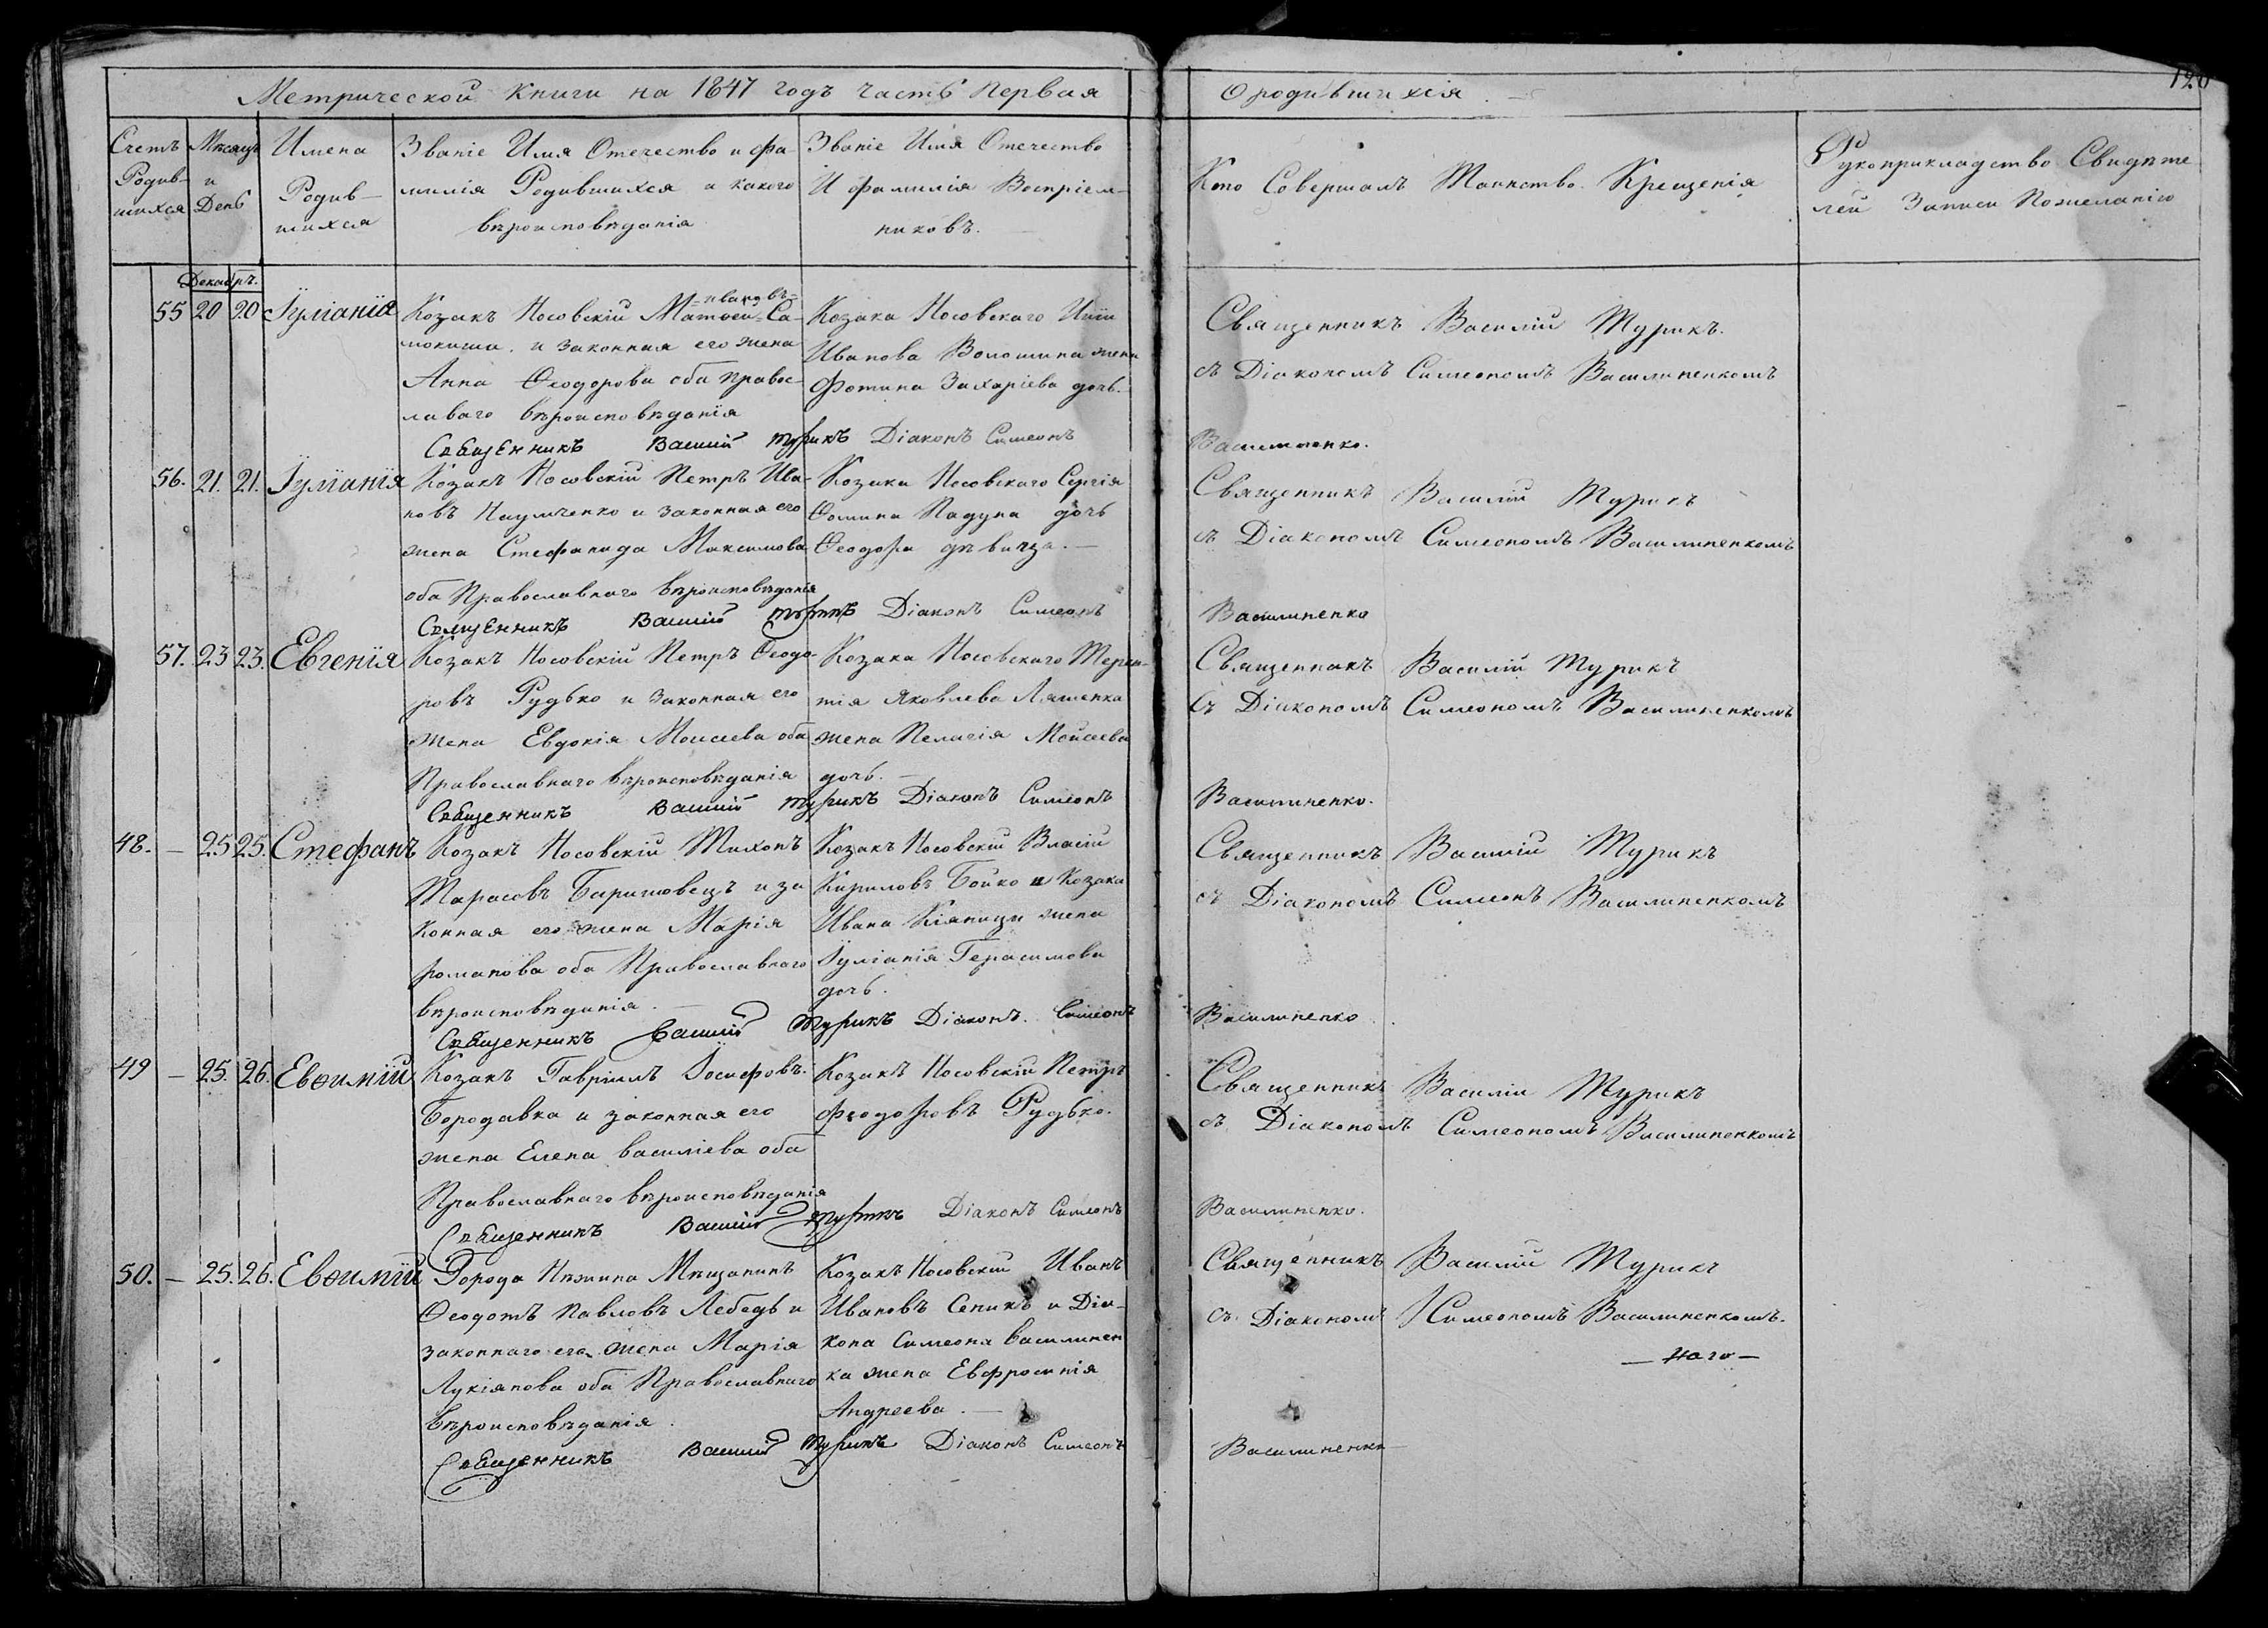 Метрической книги на 1847 годъ часть первая
О родившихся.
120
Счетъ Родив- шихся
Мѣсяцъ и День
Имена Родив- шихся
Званіе Имя Отечество и фа-
милія Родившихся и какого
вѣроисповѣданія
Званіе Имя Отечество
И фамилія Воспріем-
никовъ.
Кто Совершалъ Таинство Крещенія
Рукоприкладство Свидѣте
лей Записи Пожеланію
Декабрь.
55 20 20 Іуліанія
Козакъ Носовскій Матфей Ивановъ Са-
мокиша. и законная его жена
Анна Ѳеодорова оба правос-
лаваго вѣроисповѣданія
Козака Носовскаго
Иванова Волошина жена
Фотина Захаріева дочь.
Священникъ Василій Турикъ.
съ Діакономъ Симеономъ Василиненкомъ
Священникъ Василій Турикъ Діаконъ Симеонъ Василиненко.
56. 21. 21. Іуліанія
Козакъ Носовскій Петръ Ива-
новъ Наумченко и законная его
жена Стефанида Максимова
оба Православнаго вѣроисповѣданія
Козака Носовскаго Сергія
Ѳомина Падуна дочь
Ѳеодора дѣвица. —
Священникъ Василій Турикъ
съ Діакономъ Симеономъ Василиненкомъ
Священникъ Василій Турикъ Діаконъ Симеонъ Василиненко
57. 23 23. Евгенія
Козакъ Носовскій Петръ Ѳеодо-
ровъ Рудько и законная его
жена Евдокія Моисеева оба
Православнаго вѣроисповѣданія
Козака Носовскаго Терен-
тія Яковлева Ляшенка
жена Пелагія Моисеева
дочь. —
Священникъ Василій Турикъ
съ Діакономъ Симеономъ Василиненкомъ
Священникъ Василій Турикъ Діаконъ Симеонъ Василиненко.
48. — 25 25. Стефанъ
Козакъ Носовскій Тихонъ
Тарасовъ Баришовецъ и за
конная его жена Марія
романова оба Православнаго
вѣроисповѣданія. —
Козакъ Носовскій Власій
Кириловъ Бойко и Козака
Ивана Кіяници жена
Іуліанія Герасимова
дочь.
Священникъ Василій Турикъ
съ Діакономъ Симеонъ Василиненкомъ
Священникъ Василій Турикъ Діаконъ. Симеонъ Василиненко
49 — 25. 26. Евѳимій
Козакъ Гавріилъ Іосифовъ.
Бородавка и законная его
жена Елена василіева оба
Православнаго вѣроисповѣданія
Козакъ Носовскій Петръ
Феодоровъ Рудько.
Священникъ Василій Турикъ
съ Діакономъ Симеономъ Василиненкомъ
Священникъ Василій Турикъ Діаконъ Симеонъ Василиненко.
50. — 25. 26. Евѳимій
Города Нѣжина Мѣщанинъ
Ѳеодотъ Павловъ Лебедь и
законнаго его жена Марія
Лукіянова оба Православнаго
вѣроисповѣданія.
Козакъ Носовскій Иванъ
Ивановъ Сеникъ и Діа-
кона Симеона василинен
ка жена Евфросинія
Андреева. —
Священникъ Василій Турикъ
съ Діакономъ Симеономъ Василиненкомъ.
Священникъ Василій Турикъ Діаконъ Симеонъ Василиненко